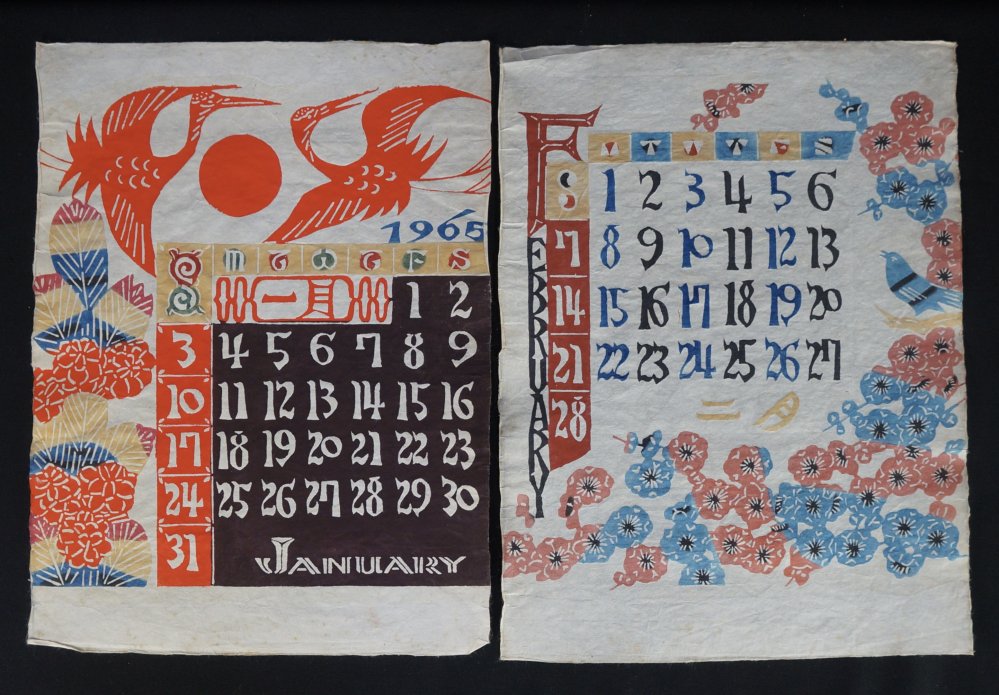 1965
S M T W T F S
一月
1 2
3 4 5 6 7 8 9
10 11 12 13 14 15 16
17 18 19 20 21 22 23
24 25 26 27 28 29 30
31
JANUARY
FEBRUARY
S M T W T F S
1 2 3 4 5 6
7 8 9 10 11 12 13
14 15 16 17 18 19 20
21 22 23 24 25 26 27
28
二月